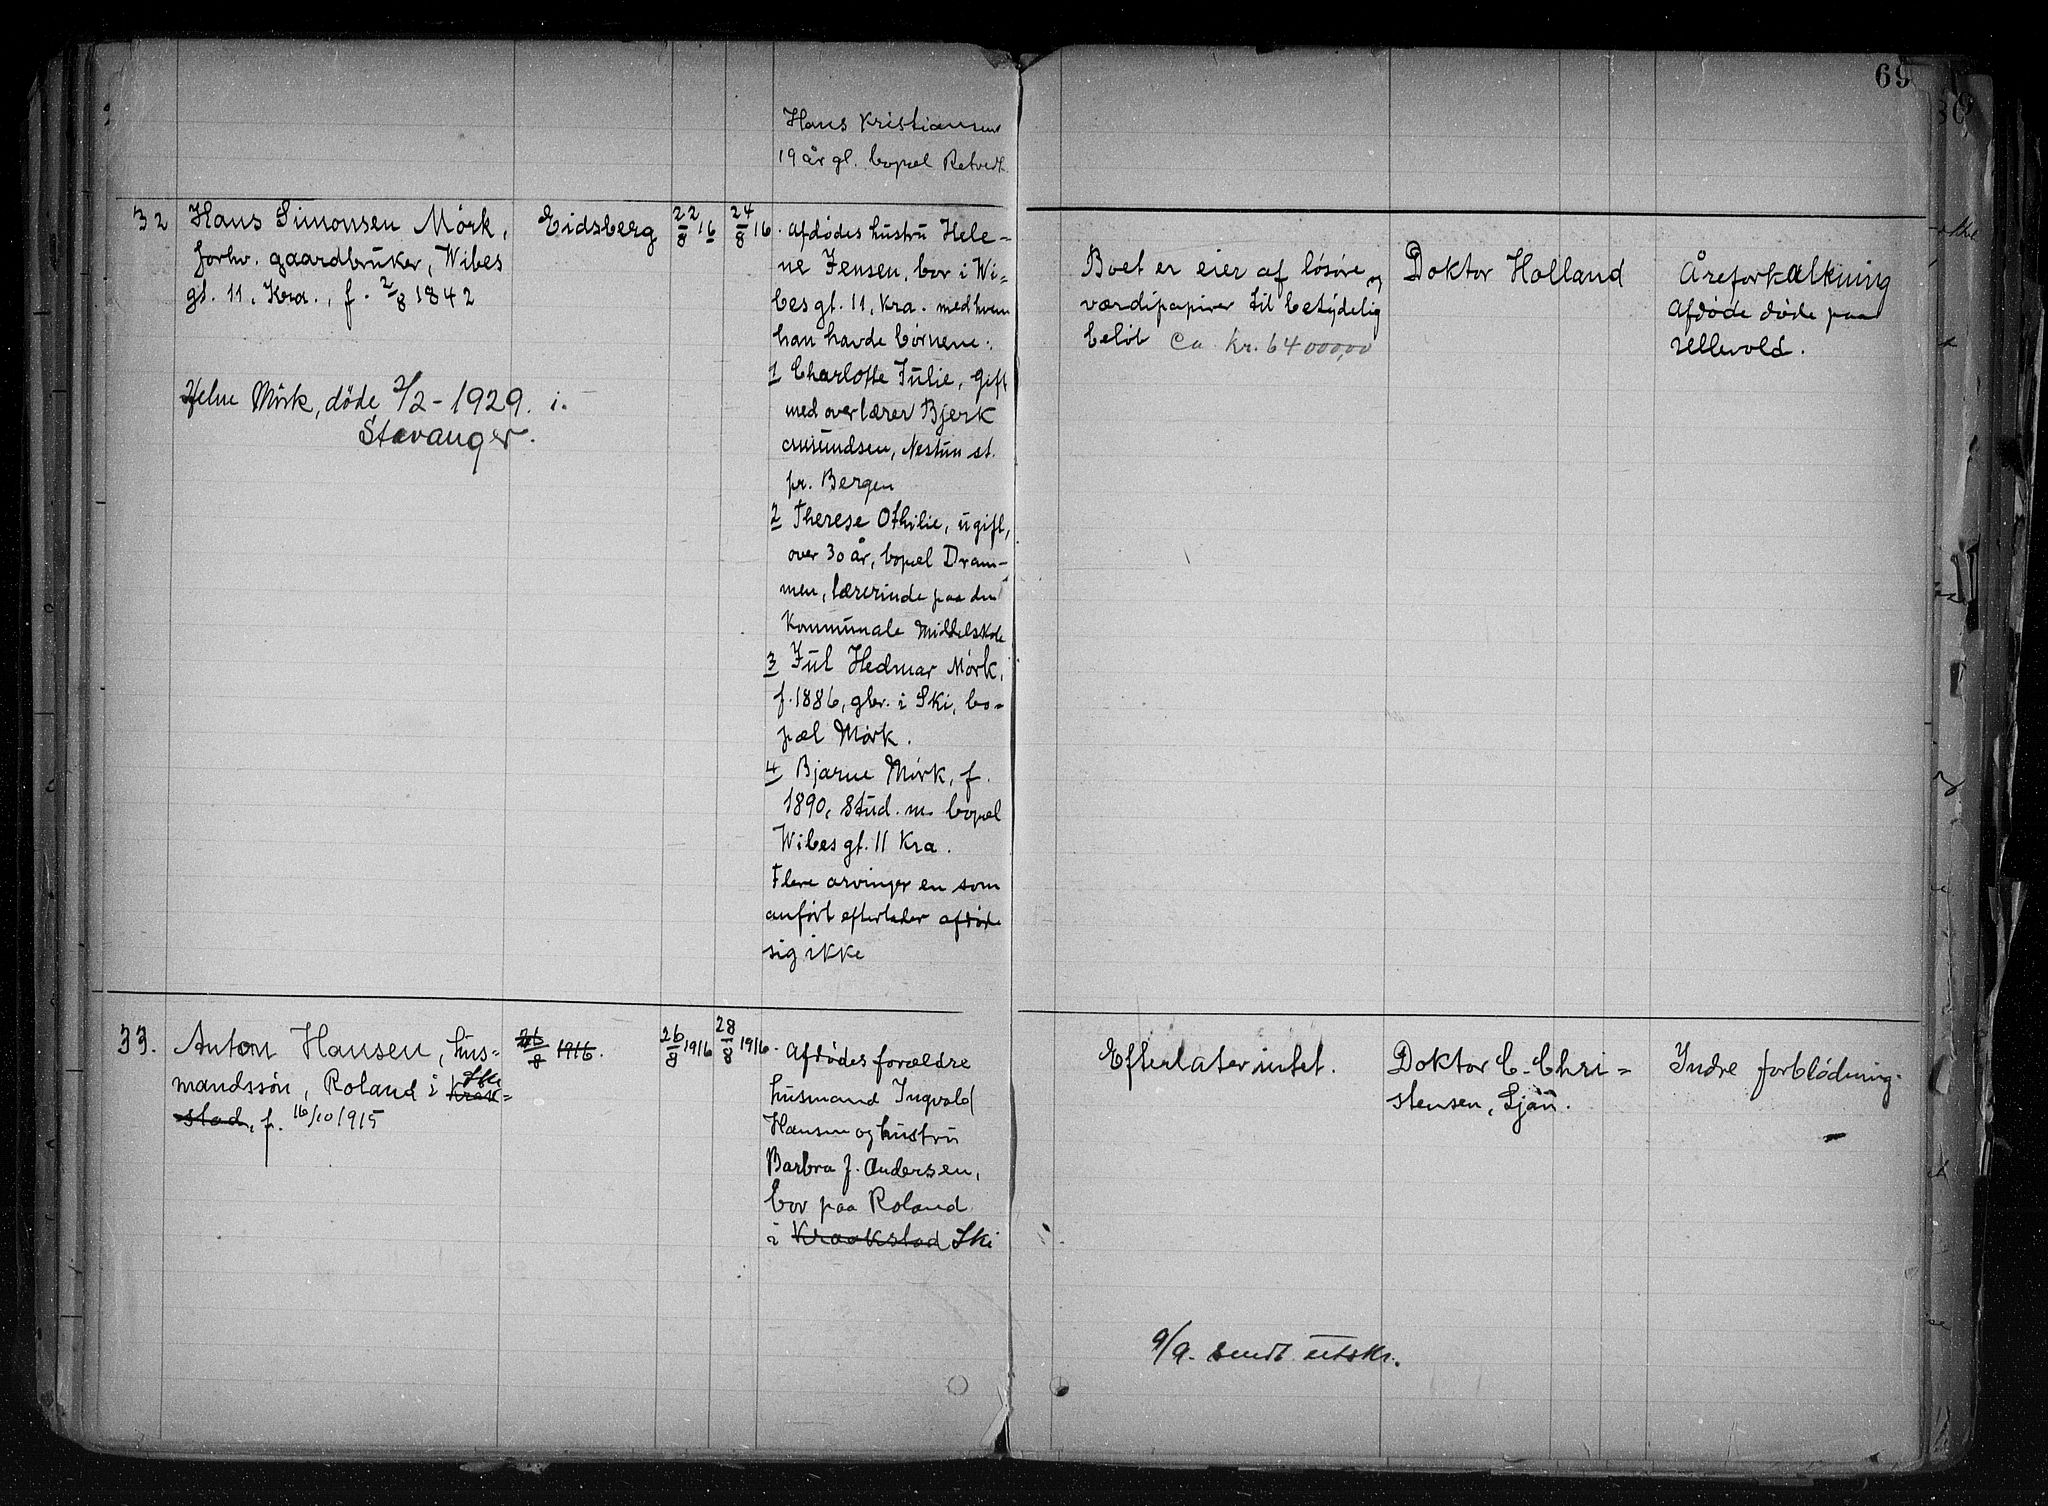 69
Hans Kristiansen
19 år gl. bopæl Retvedt
32
Hans Simonsen Mörk,
forhv. gaardbruker, Wibes
gt. 11, Kra., f. 2/8 1842
Helene Mörk, döde 2/2-1929. i.
Stavanger.
Eidsberg
22/8 16
24/8 16.
Afdödes hustru Hele=
ne Jensen, bor i Wi=
bes gt. 11, Kra. med hvem
han havde börnene:
1 Charlotte Julie, gift
med overlærer Bjerk
Amundsen, Nestun st.
pr. Bergen
2 Therese Othilie, ugift,
over 30 år, bopæl Dram-
men, lærerinde paa den
Kommunale Middelskole
3 Jul Hedmar Mörk,
f. 1886, gbr. i Ski, bo-
pæl Mörk.
4 Bjarne Mörk, f.
1890, Stud. m. bopæl
Wibes gt. 11 Kra.
Flere arvinger en som
anfört efterlader afdöde
sig ikke
Boet er eier af lösöre og
værdipapirer til betydelig
belöb Ca kr. 64000,00
Doktor Holland
Åreforkalkning
Afdöde döde paa
Ullevold.
33.
Anton Hansen, hus=
mandssön, Roland i Kraak= Ski
stad, f. 16/10 1915
26/8 1916.
26/8 1916
28/8 1916.
Afdödes forældre
husmand Ingvald
Hansen og hustru
Barbra f. Andersen,
bor paa Roland
i Kraakstad Ski
Efterlater intet.
Doktor C. Chri=
stensen, Ljan.
Indre forblödning.
9/9. sendt utskr.